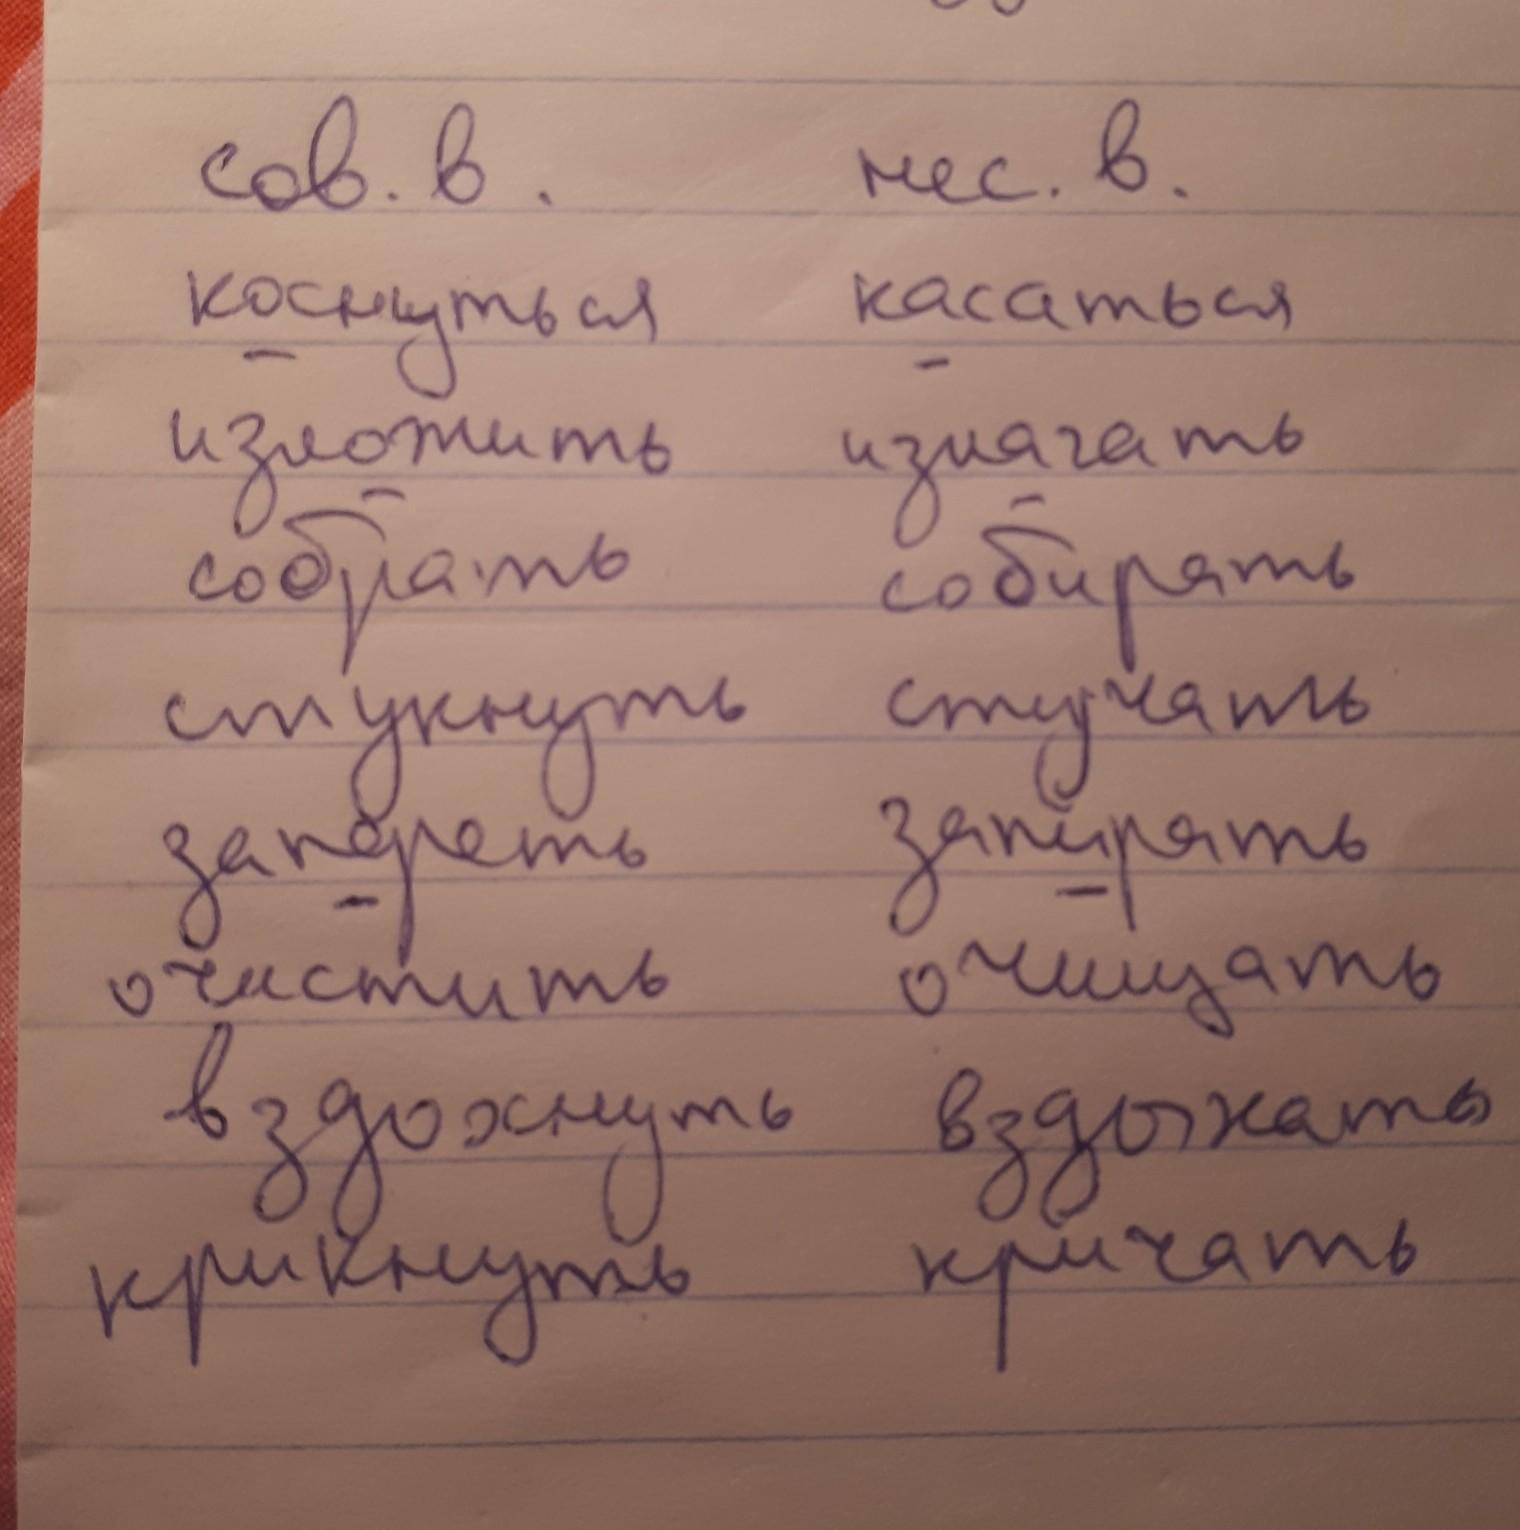 сов. в. нес. в.
коснуться касаться
изложить излагать
собрать собирать
стукнуть стучать
запереть запирать
очистить очищать
вздохнуть вздыхать
крикнуть кричать